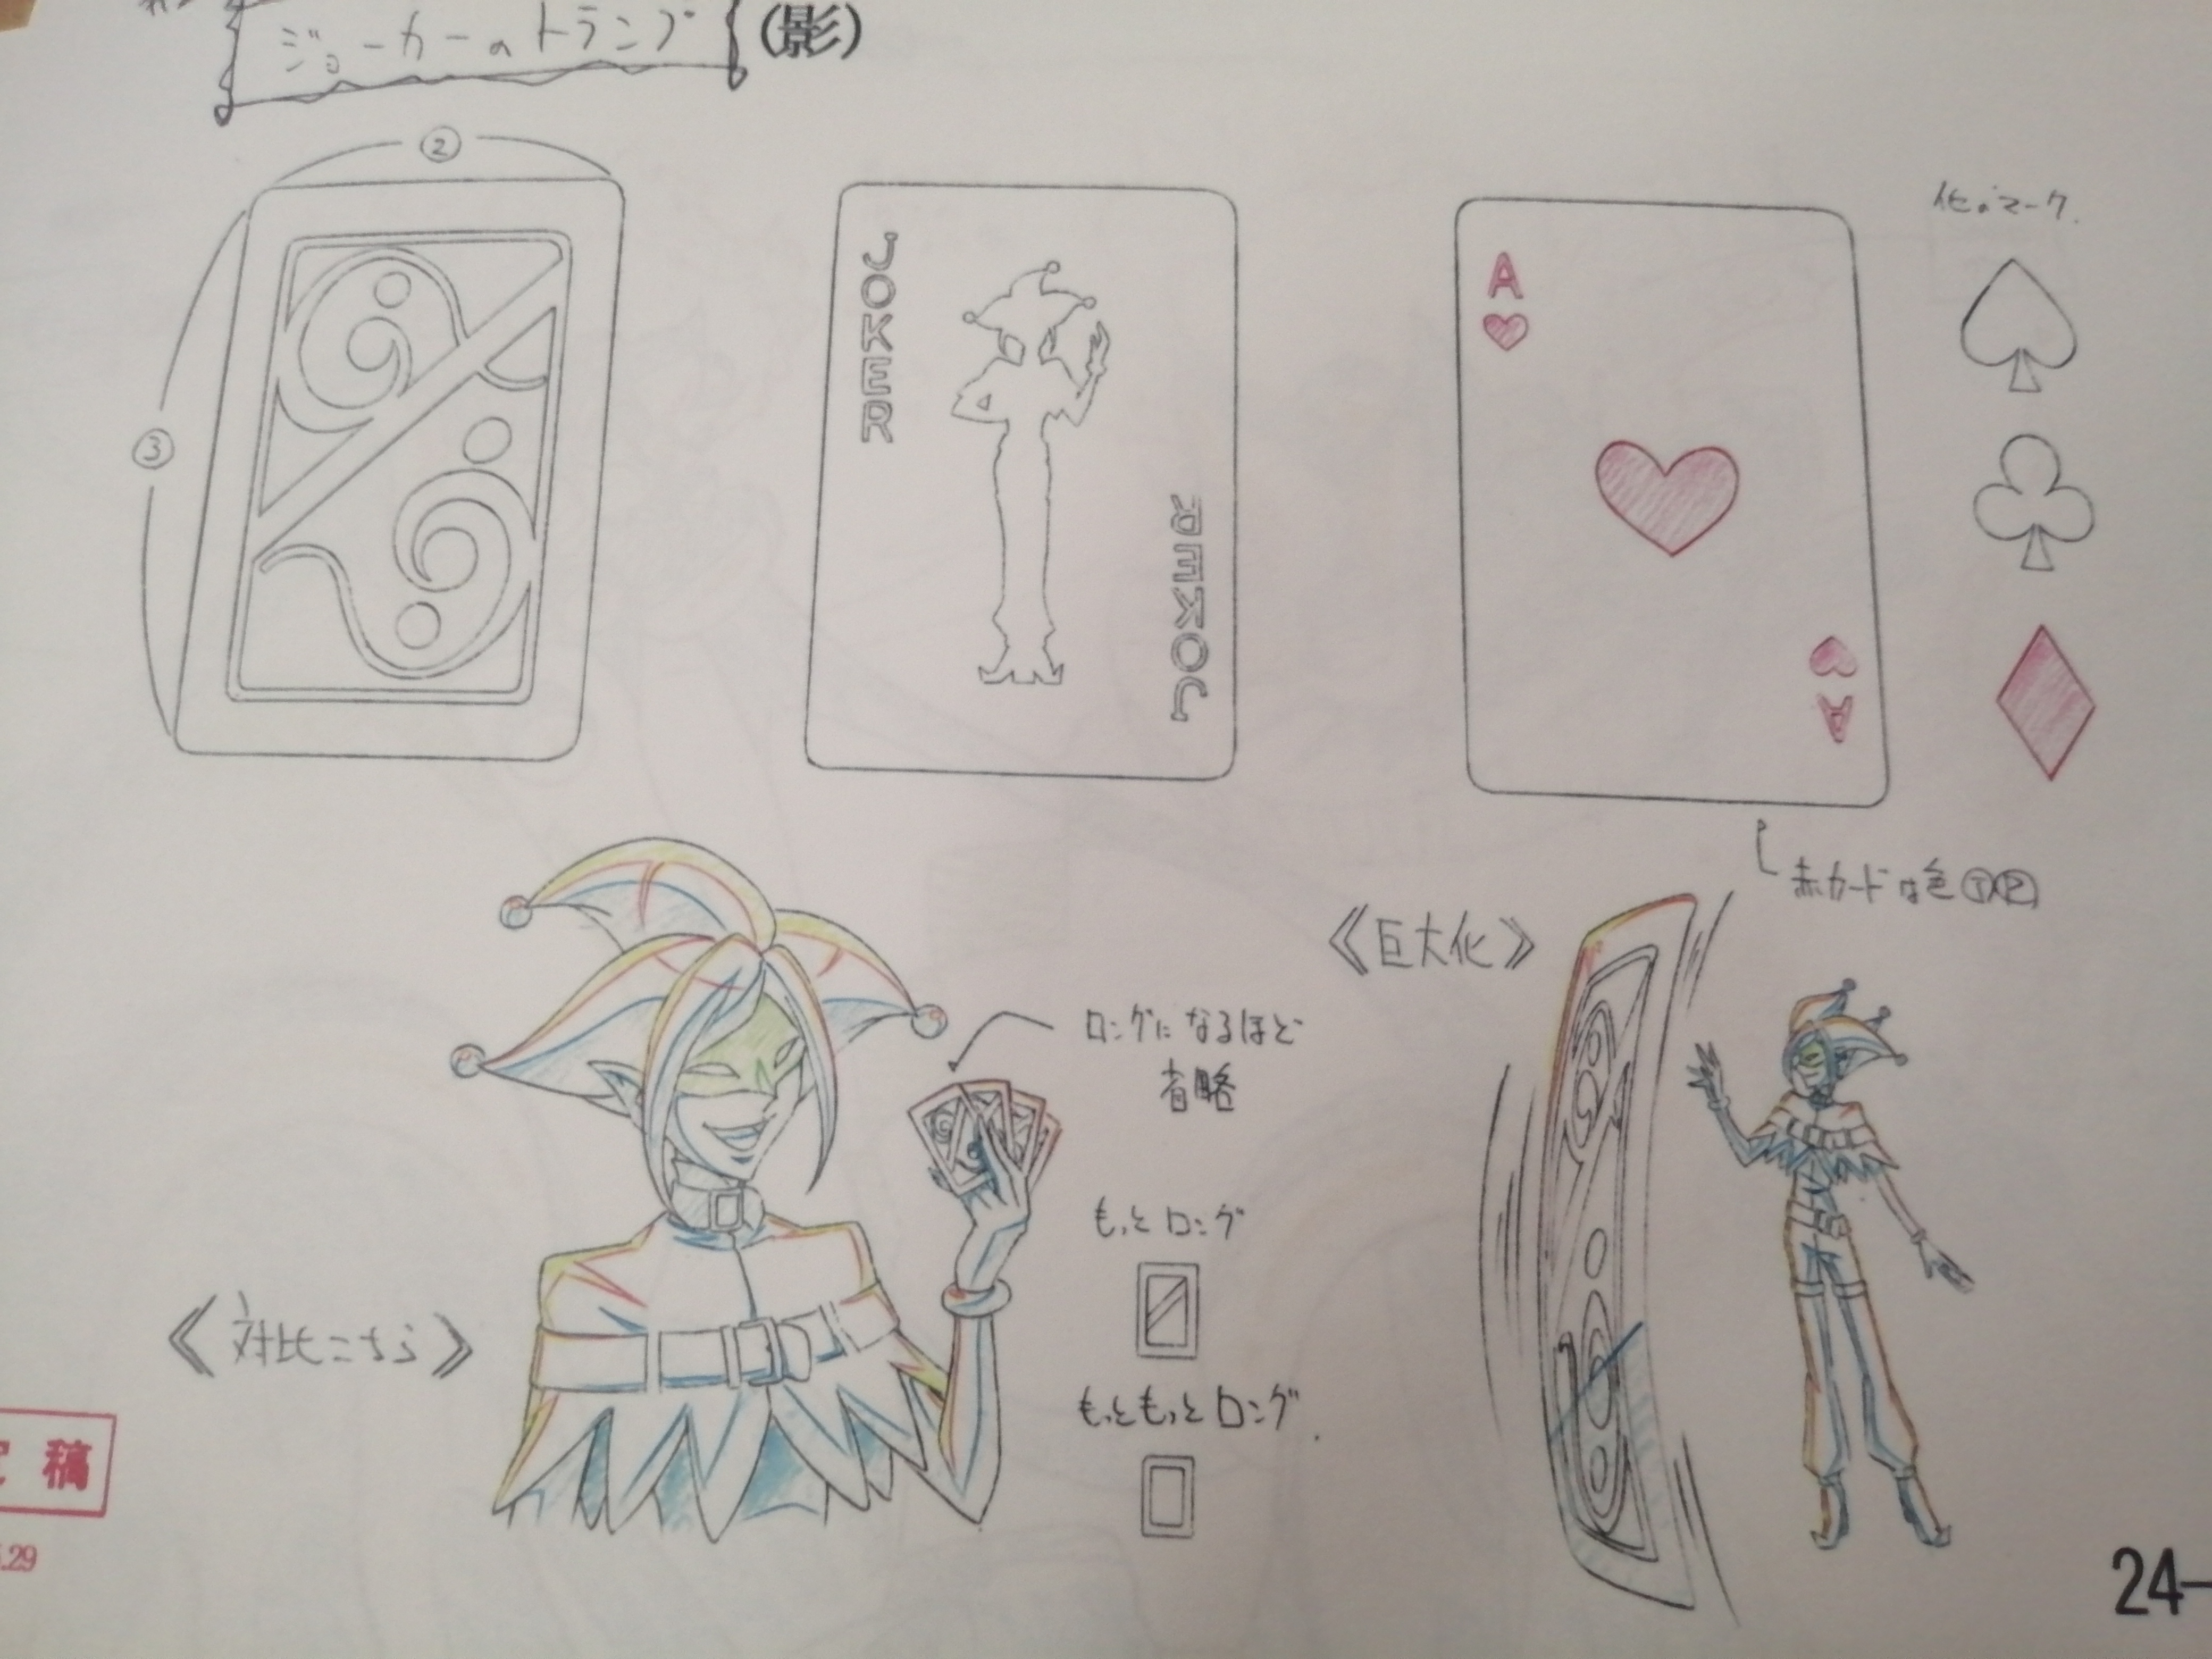 ジョーカーのトランプ
(影)
②
③
JOKER
JOKER
A
A
他のマーク.
赤カードは色①②
《巨大化》
ロングになるほど
省略
もっとロング
もっともっとロング.
《対比こちら》
定稿
.29
24-